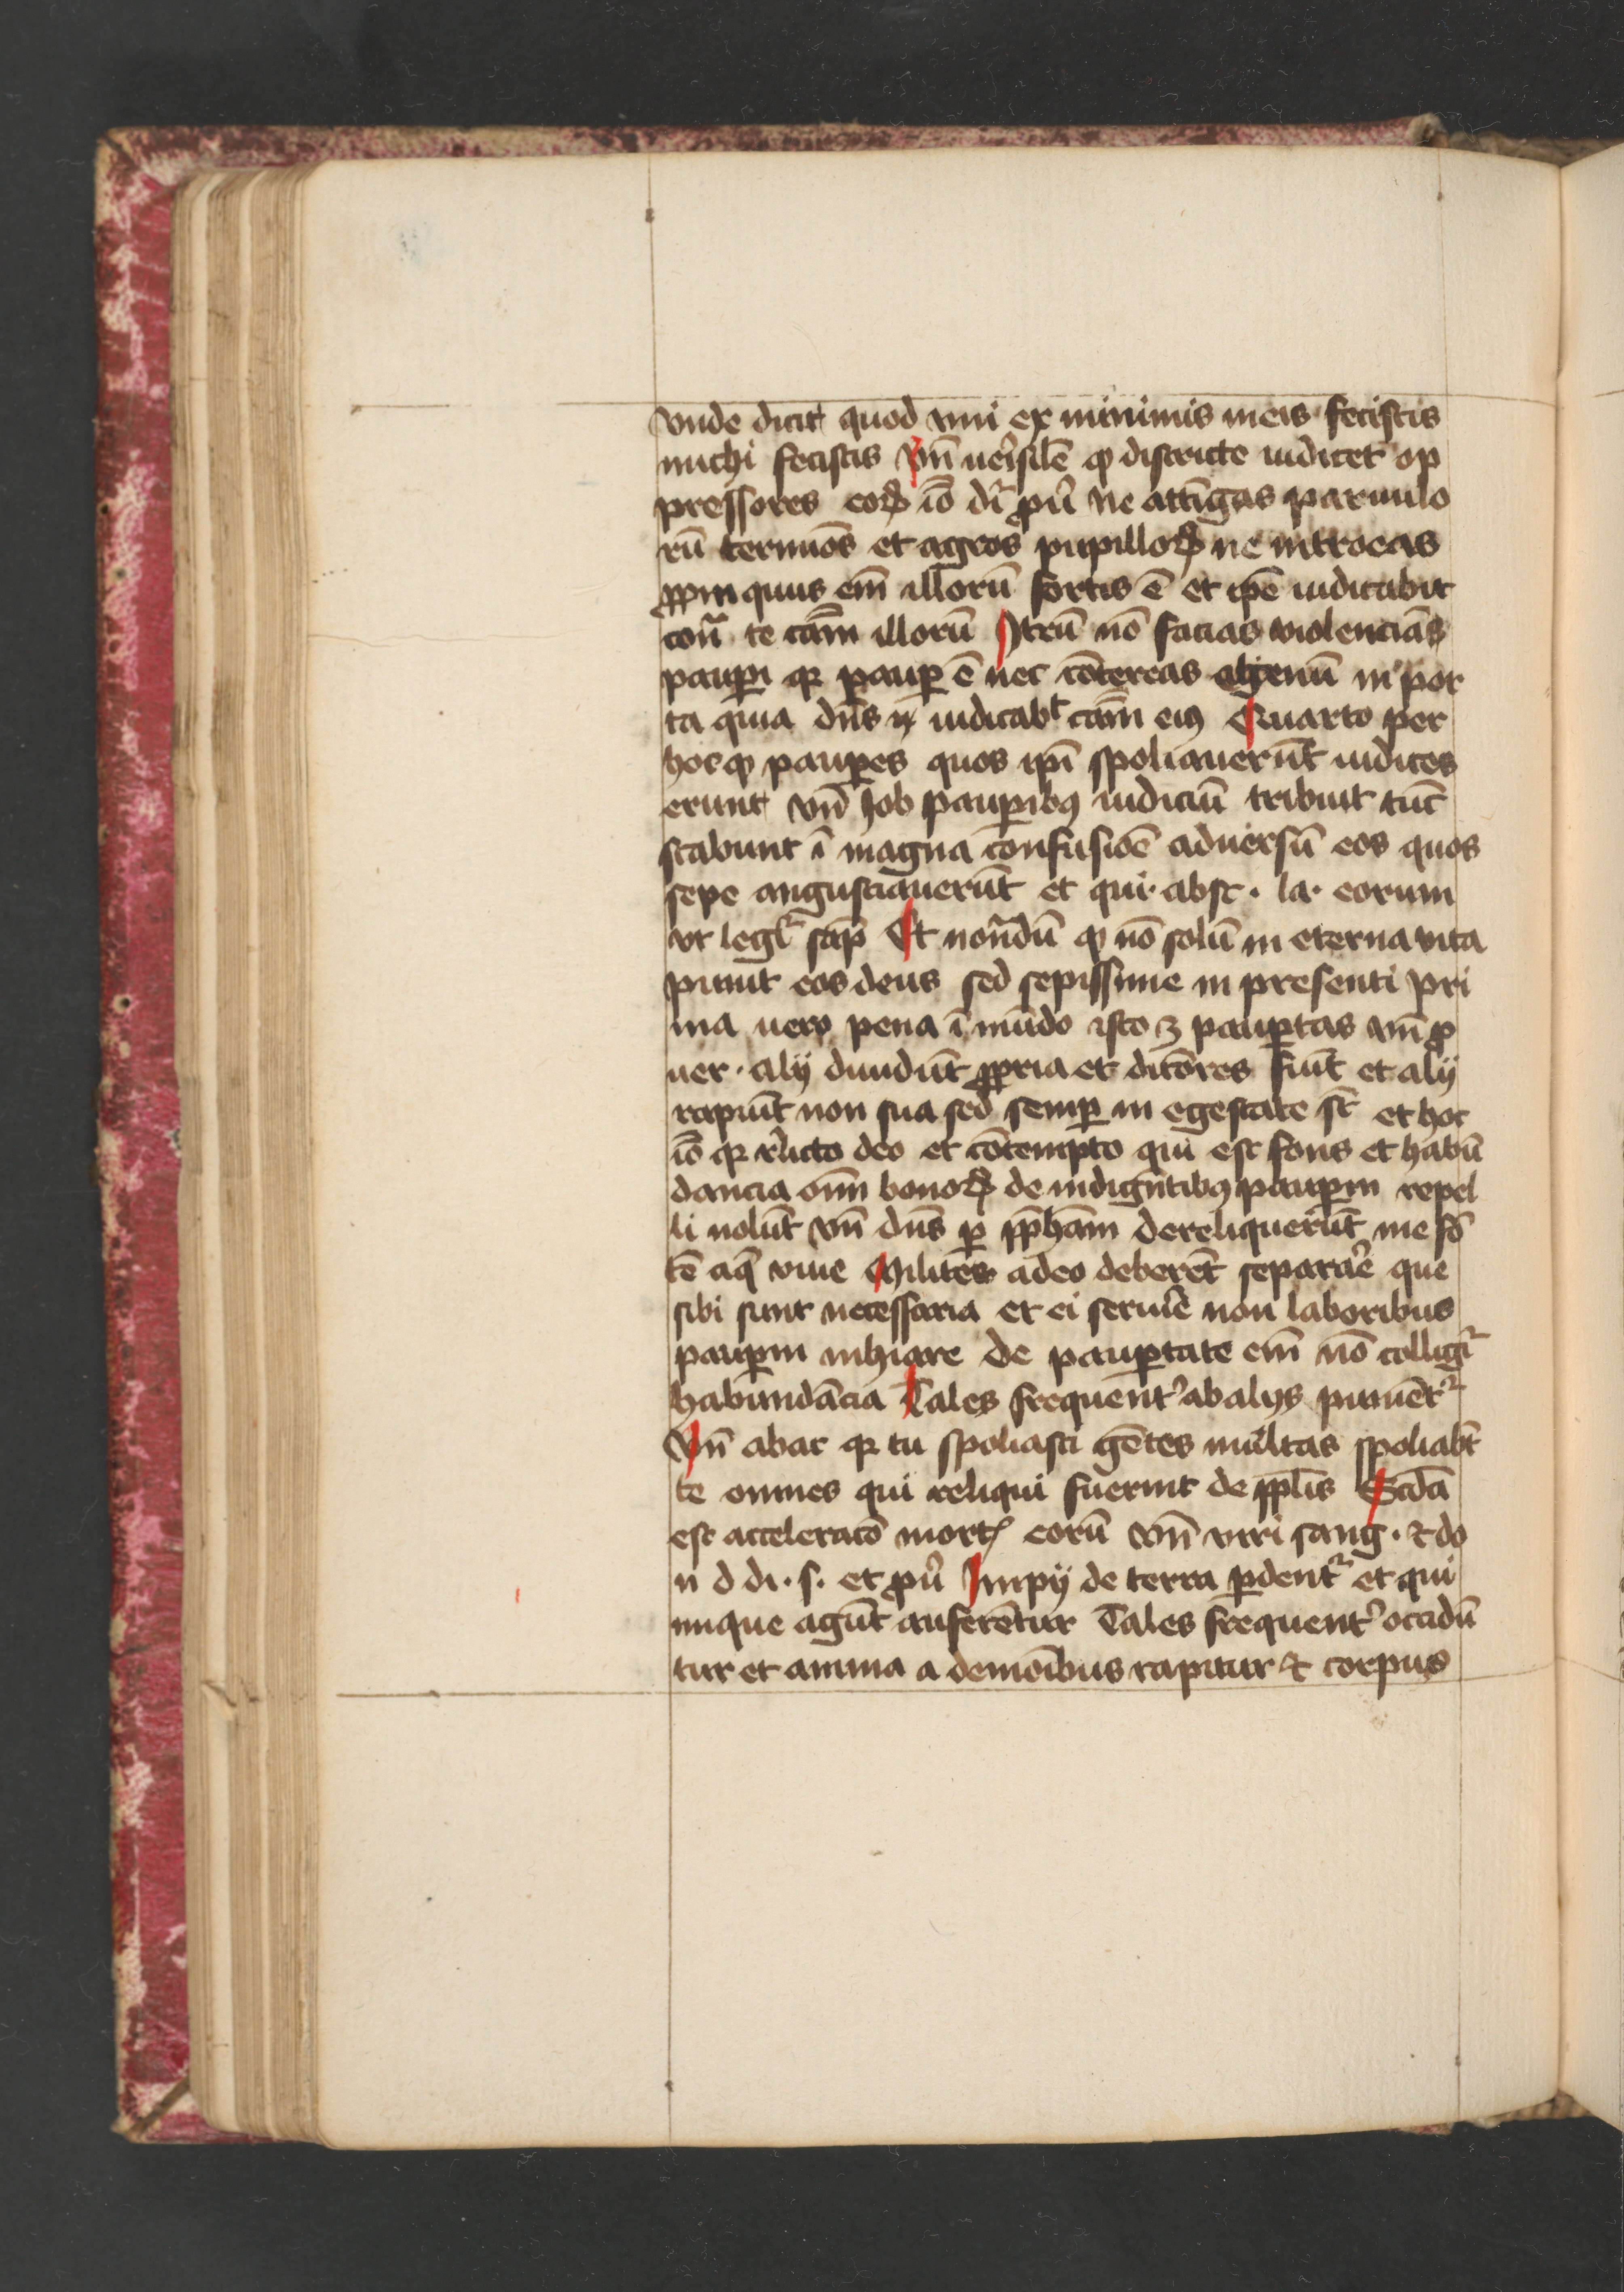 vnde dicit quod vni ex minimis meis fecistis
michi fecistis vñ uerisile ꝙ districte iudicet op
pressores eoꝝ io dr̄ ꝓu̓ ne attīgas paruulo
rū termīos et agros pupilloꝝ ne introeas
ꝓpinquus em̄ illorū fortis ē et ip̄e iudicabit
cont̄ te cām illorū Itrū nō facias violenciā
paupi qꝛ pauꝑ ē nec cōtereas egenū in por
ta quia dn̄s iudicabt cām eiꝯ Quarto per
hoc ꝙ pauꝑes quos ip̄i spoliauerūt iudices
erunt vn̄ Job pauꝑibꝯ iudiciū tribuit tūc
stabunt ī magna confusiōe aduersū eos quos
sepe angustiauerūt et qui · abst · la · eorum
vt legr̄ sap̄ Et notādū ꝙ nō solū in eterna vita
punit eos deus sed sepissime in presenti Pri
ma uero pena ī mūdo isto ꝫ pauꝑtas vn̄ ꝓ
uer · alij diuidūt ꝓpria et ditōres fiūt et alij
rapiūt non sua sed semꝑ in egestate st̄ et hoc
io qꝛ rl̓icto deo et cōtempto qui est fons et habū
dancia oīm bonoꝝ de indigētibꝯ pauꝑem repel
li nolūt vn̄ dn̄s ꝑ ꝓph̄am dereliquerūt me fō
tē aq̄ viue Milites a deo deberēt separare̓ que
sibi sunt necessaria et ei seruire̓ non laboribus
pauꝑm inhiare de pauꝑtate em̄ nō colligr̄
habundācia Tales frequent̓ ab alijs puniēt᷑
Vn̄ abac qꝛ tu spoliasti gētes multas spoliabt̄
te omnes qui reliqui fuerint de ꝓp̄lis Scd̄a
est acceleracō mortꝭ eorū vn̄ viri sang · ⁊ do
n d di · s · et ꝓu̓ Impij de terra ꝑdent᷑ et qui
inique agūt auferētur Tales frequent̓ occidū
tur et anima a demoībus rapitur ⁊ corpus